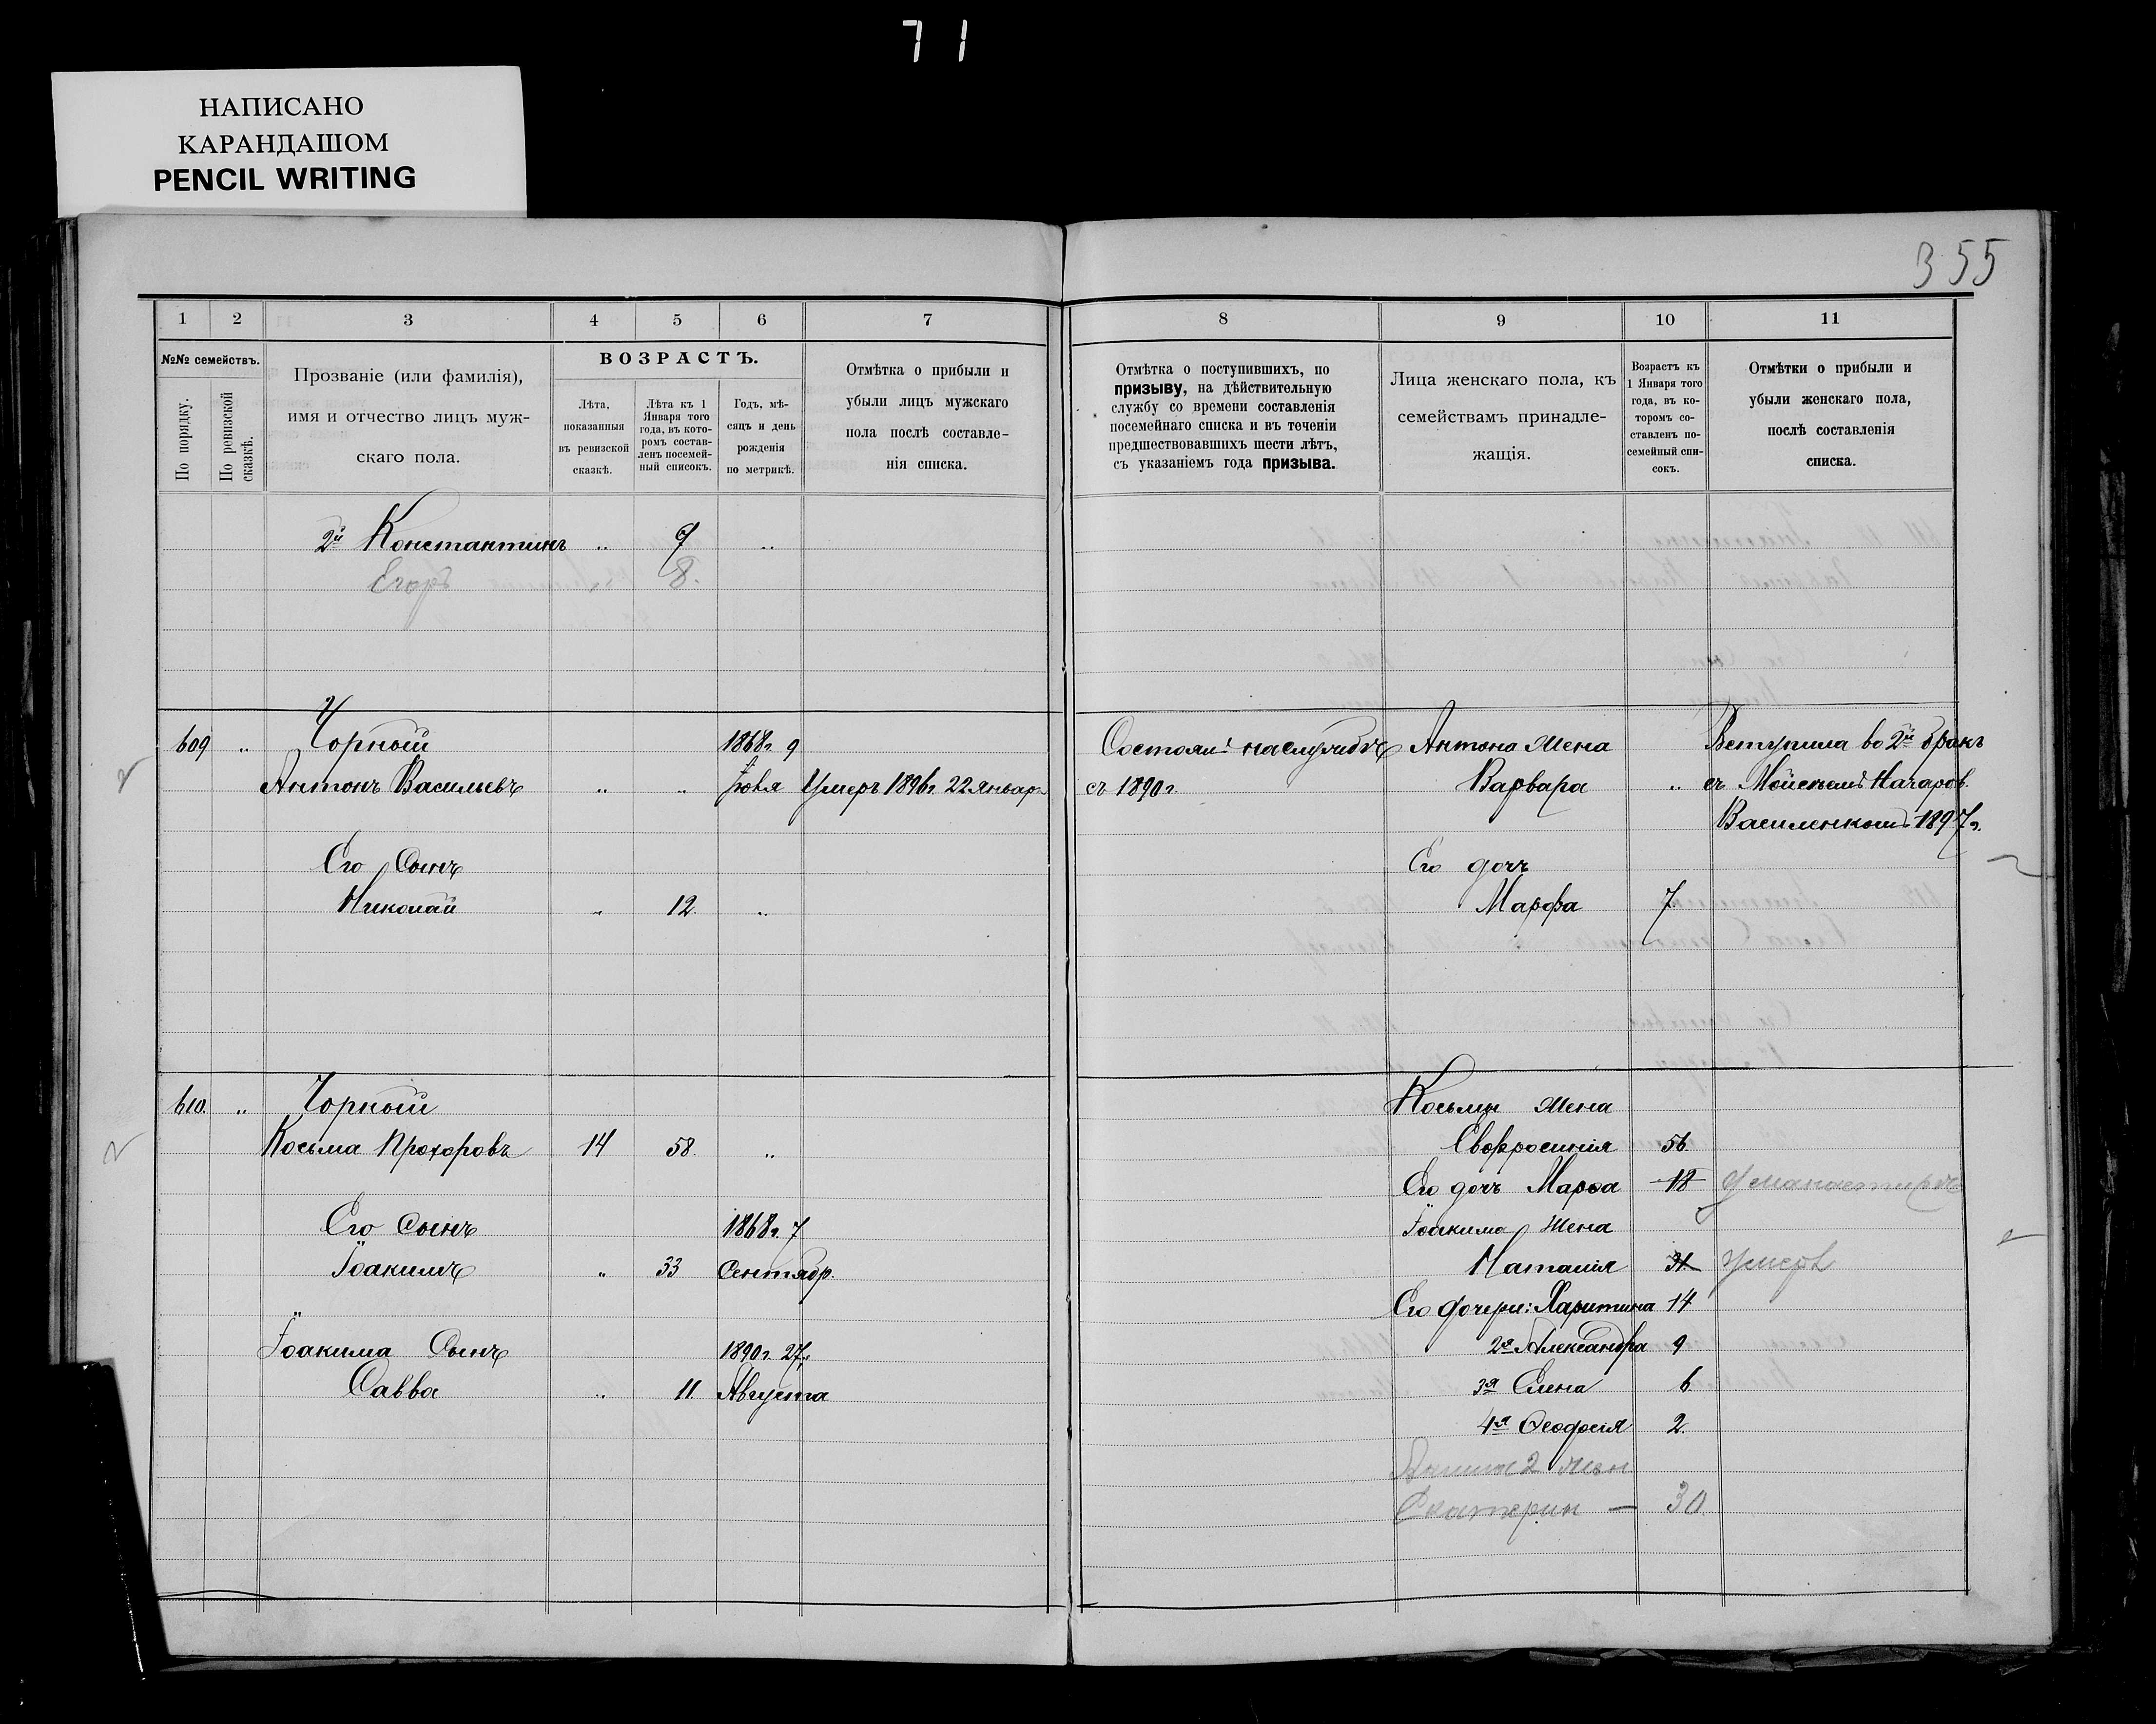 71
НАПИСАНО
КАРАНДАШОМ
PENCIL WRITING
355
1 2 3 4 5 6 7
№№ семействъ.
По порядку.
По ревизской сказкѣ.
Прозваніе (или фамилія),
имя и отчество лицъ муж-
скаго пола.
ВОЗРАСТЪ.
Лѣта,
показанныя
въ ревизской
сказкѣ.
Лѣта къ 1
Января того
года, въ кото-
ромъ состав-
ленъ посемей-
ный списокъ.
Годъ, мѣ-
сяцъ и день
рожденія
по метрикѣ.
Отмѣтка о прибыли и
убыли лицъ мужскаго
пола послѣ составле-
нія списка.
2й Константинъ .. 9 ..
Егоръ .. 8.
609 .. Чорный 1868г. 9
Антонъ Васильевъ .. .. Іюля Умеръ 1896г. 22 Январ.
Его Сынъ
Николай .. 12. ..
610. .. Чорный
Косьма Прохоровъ 14 58. ..
Его Сынъ 1868г. 7
Іоакимъ .. 33 Сентябр.
Іоакима Сынъ 1890г. 27.
Савва .. 11 Августа
8 9 10 11
Отмѣтка о поступившихъ, по
призыву, на дѣйствительную
службу со времени составленія
посемейнаго списка и въ теченіи
предшествовавшихъ шести лѣтъ,
съ указаніемъ года призыва.
Лица женскаго пола, къ
семействамъ принадле-
жащія.
Возрастъ къ
1 Января того
года, въ ко-
торомъ со-
ставленъ по-
семейный спи-
сокъ.
Отмѣтки о прибыли и
убыли женскаго пола,
послѣ составленія
списка.
Состоялъ на службѣ Антона Жена Вступила во 2й бракъ
съ 1890г. Варвара .. съ Мойсеемъ Назаров.
Василенкомъ 1897г.
Его дочь
Марфа 7.
Косьмы Жена
Евфросинія 56.
Его дочь Марѳа 18 у манастирѣ
Іоакима Жена
Наталія 31. умерла
Его дочери: Харитина 14
2я Александра 9
3я Елена 6
4я Ѳеодосія 2.
2 жен
Екатерин — 30.